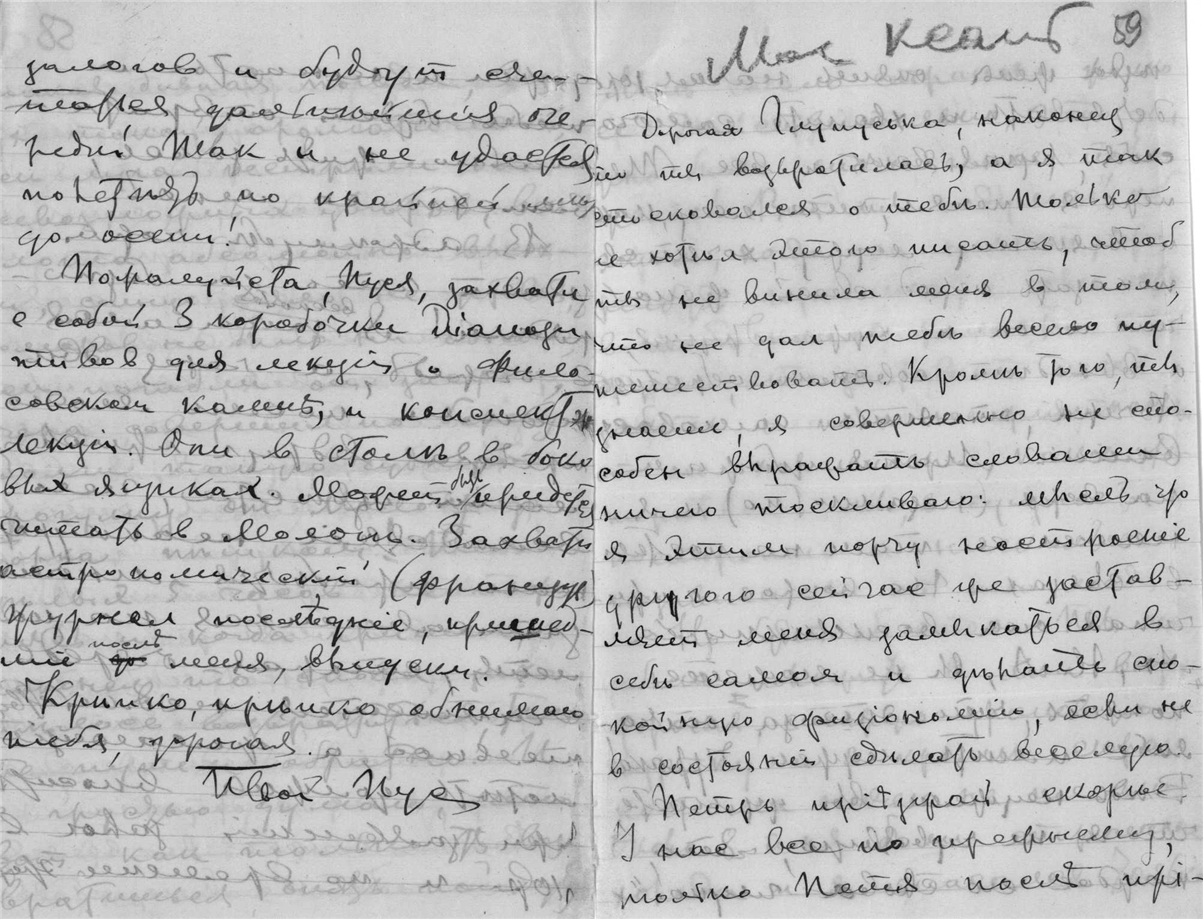 залогов и будут счи-
таться дальнѣйшія оче-
реди. Так и не удастся
полетѣть по крайней мѣрѣ
до осени!
Пожалуйста, Пуся, захвати
с собой 3 коробочки Діапози
тивов для лекціи о Фило-
совском камнѣ, и конспект
лекціи. Они в столѣ в боко
вых ящиках. Может быть придется
читать в Мологѣ. Захвати
астрономическій (француз.)
журнал послѣдніе, пришед-
шіе послѣ меня, выпуски.
Крѣпко, крѣпко обнимаю
тебя, дорогая.
Твой Пус
59
Дорогая Глупуська, наконец
то ты возвратилась, а я так
стосковался о тебѣ. Только
не хотѣл этого писать, чтоб
ты не винила меня в том,
что не дал тебѣ весело пу-
тешествовать. Кромѣ того, ты
знаеш, я совершенно не спо-
собен выражать словами
ничего тоскливаго: мысль что
я этим порчу настроеніе
другого сейчас же застав-
ляет меня замыкаться в
себѣ самом и дѣлать спо-
койную физіономію, если не
в состояніи сдѣлать веселую.
Теперь пріѣзжай скорѣе.
У нас все по прежнему,
только Петя послѣ прі-